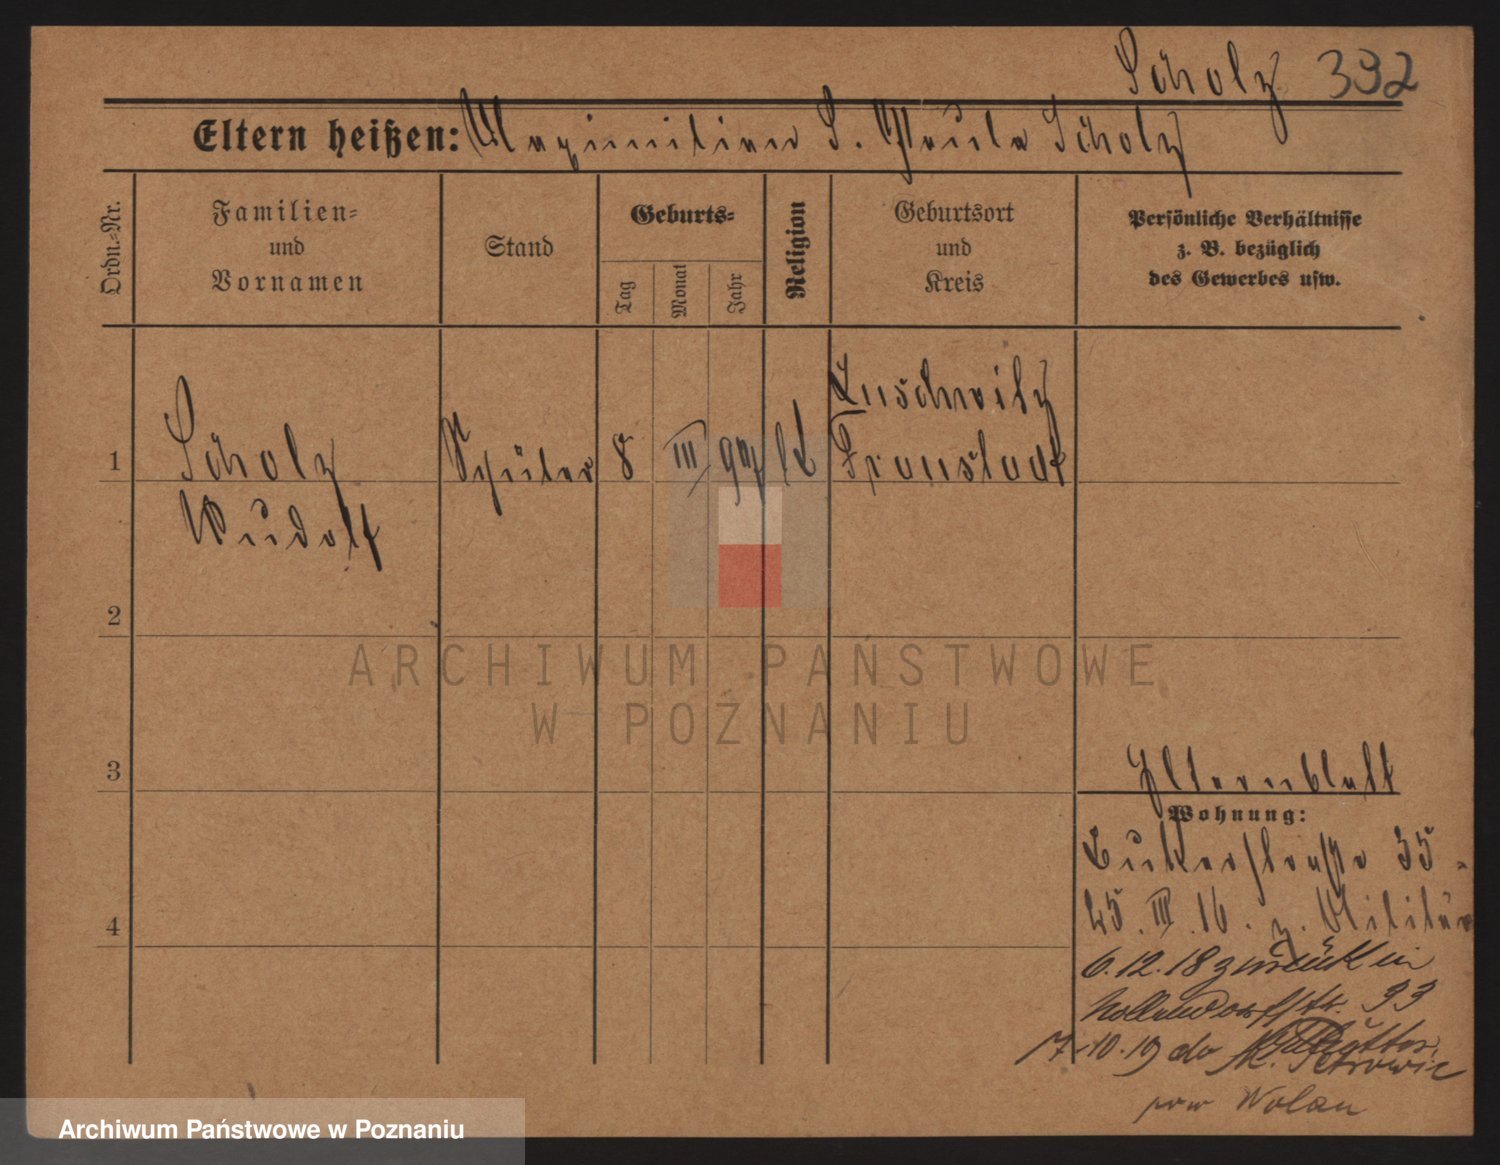 Scholz 392
Eltern heißen: Maximilian S. Paula Scholz
Ordn.-Nr.
Familien-
und
Vornamen
Stand
Geburts-
Tag
Monat
Jahr
Religion
Geburtsort
und
Kreis
Persönliche Verhältnisse
z. B. bezüglich
des Gewerbes usw.
Luschwitz
1 Scholz Schüler 8 III 97 Fraustadt
Rudolf
2
ARCHIWUM PAŃSTWOWE
W POZNANIU
3
Elternblatt
Wohnung:
Bukerstraße 35
4
25. III. 16. z. Militär
6.12.18 zurück in
Hollendorffstr. 33
7.10.19 do
Petrowic
pow Wolau
Archiwum Państwowe w Poznaniu